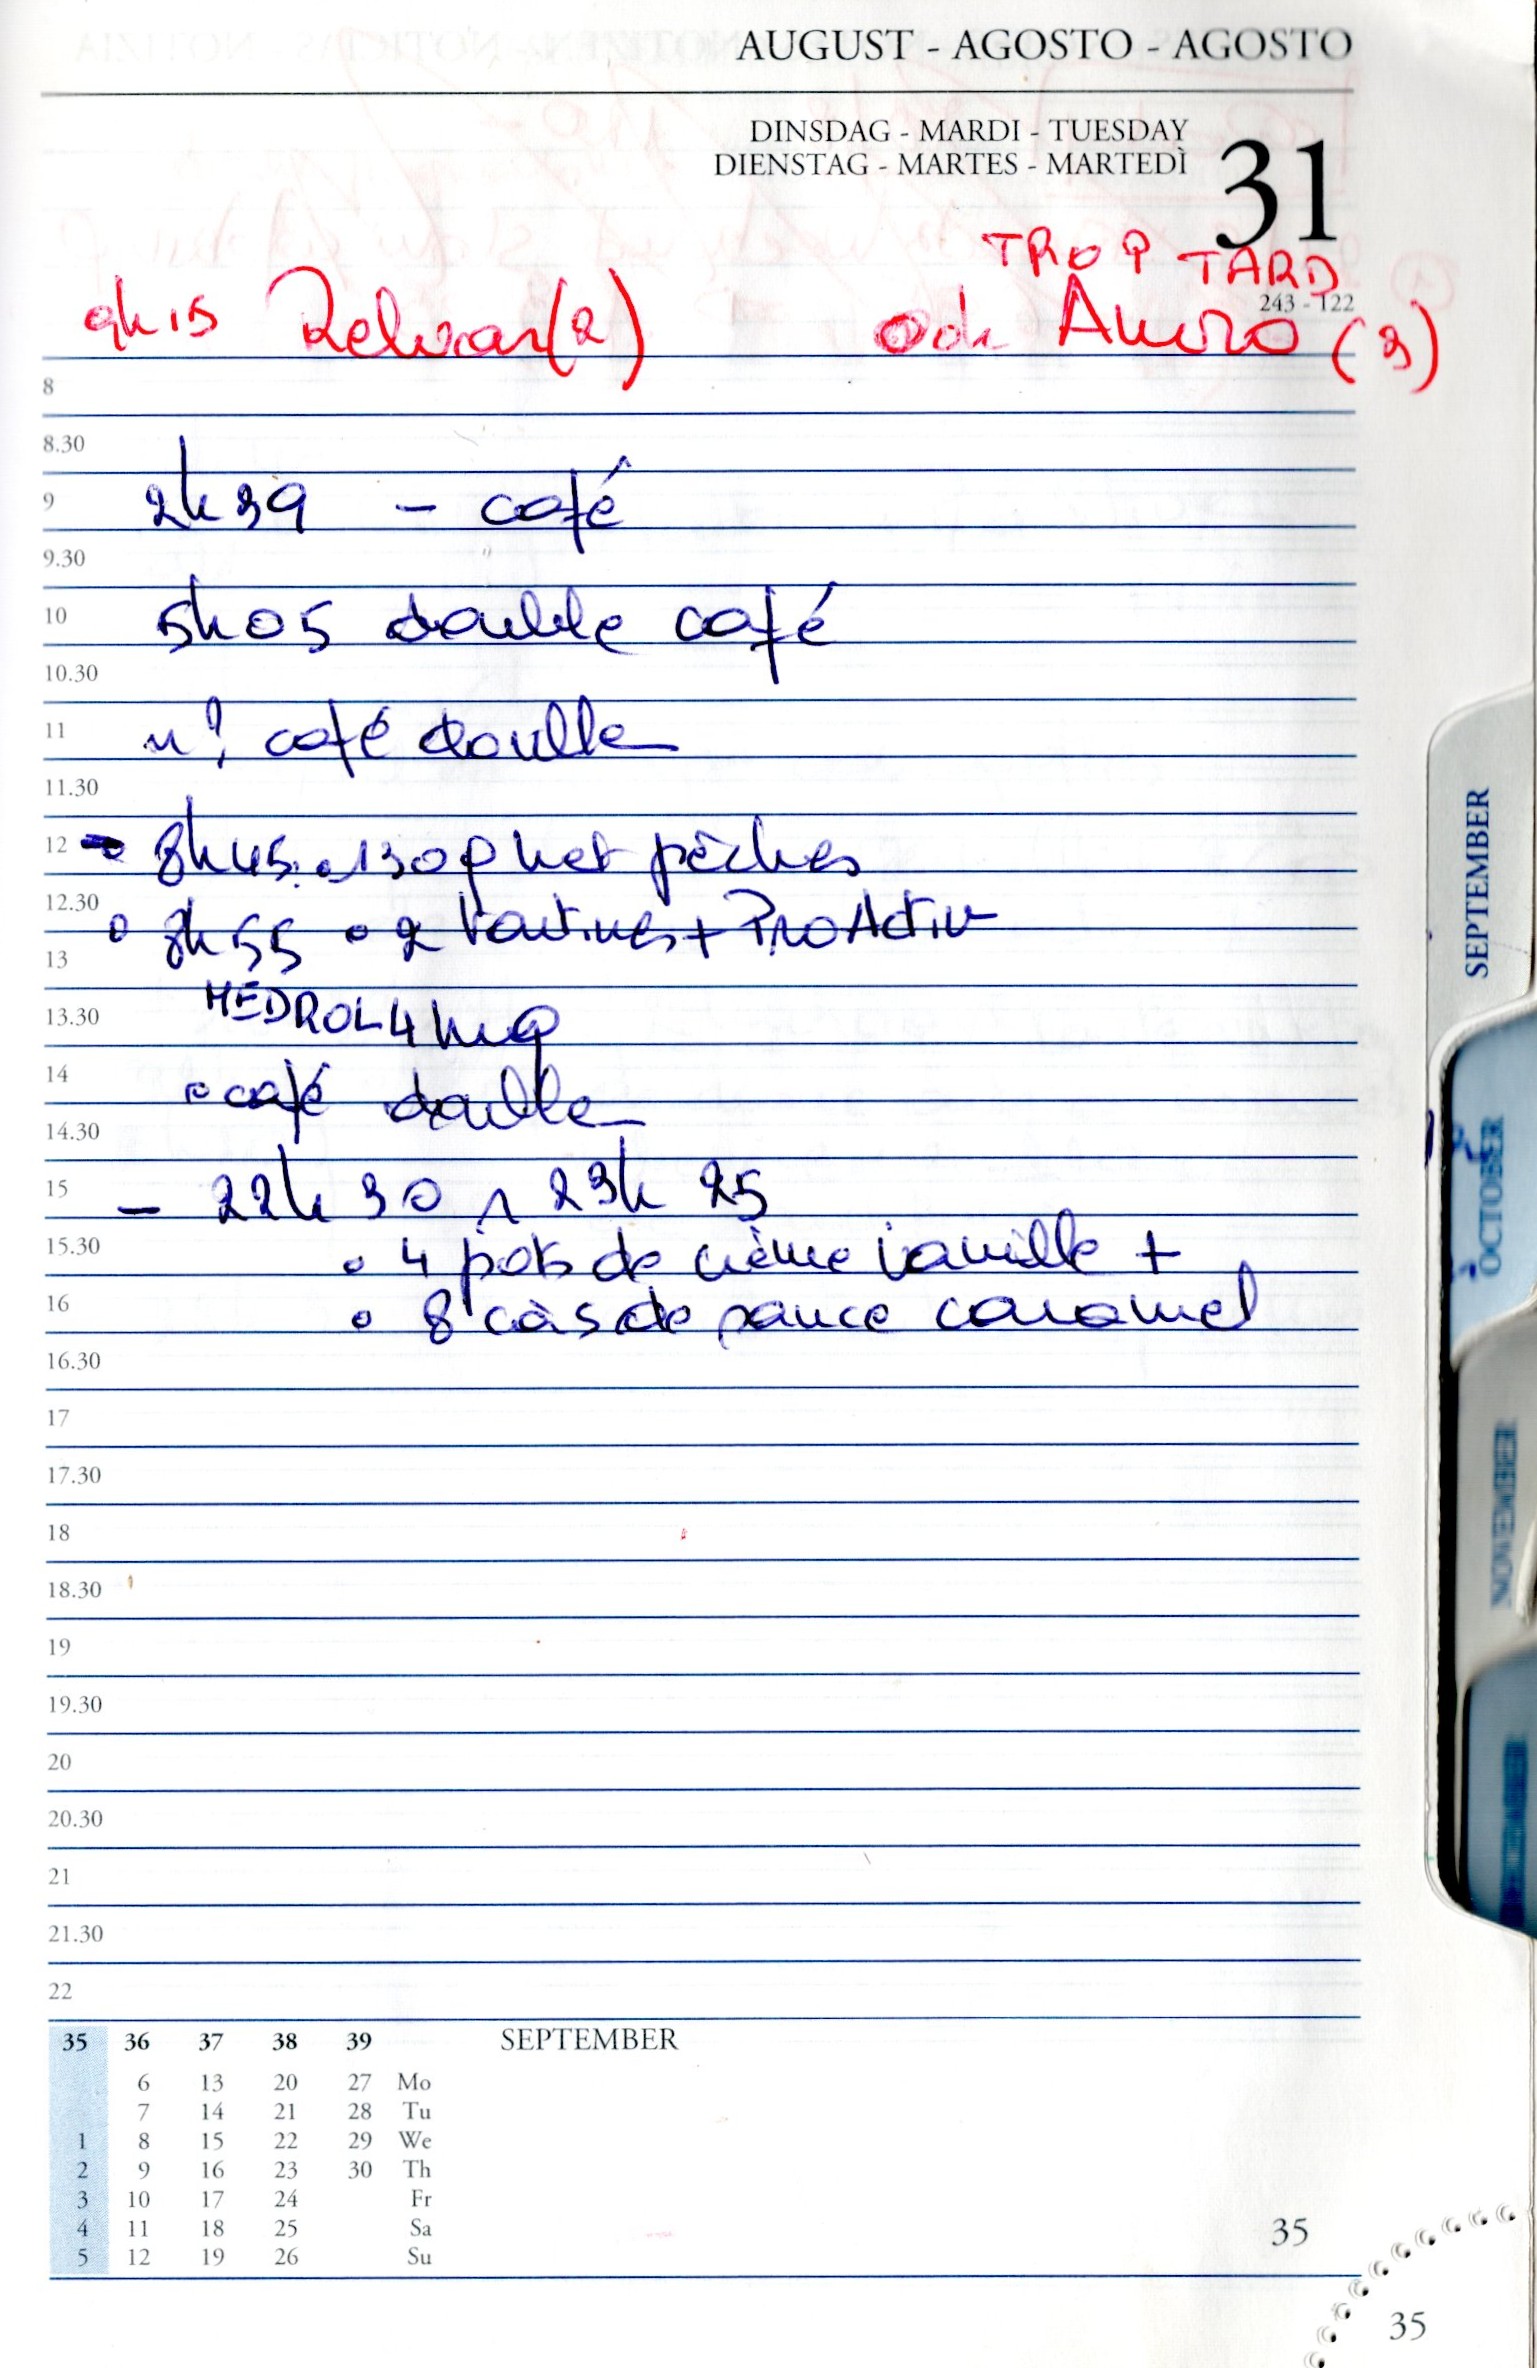 AUGUST - AGOSTO - AGOSTO
DINSDAG - MARDI - TUESDAY
DIENSTAG - MARTES - MARTEDÌ
31
TROP TARD
243 - 122
9h15 Relvar (2) Anoro (3)
8
8.30
9 2h39 - café
9.30
10 5h05 double café
10.30
11 n? café double
11.30
12 8h45 130g net pêches
12.30 8h55 2 tartines + ProActiv
13
13.30 MEDROL 4 mg
14 café double
14.30
15 - 22h30 à 23h25
15.30 4 pots de crème vanille +
16 8 càs de sauce caramel
16.30
17
17.30
18
18.30
19
19.30
20
20.30
21
21.30
22
35 36 37 38 39 SEPTEMBER
6 13 20 27 Mo
7 14 21 28 Tu
1 8 15 22 29 We
2 9 16 23 30 Th
3 10 17 24 Fr
4 11 18 25 Sa
5 12 19 26 Su
35
35
SEPTEMBER
OCTOBER
NOVEMBER